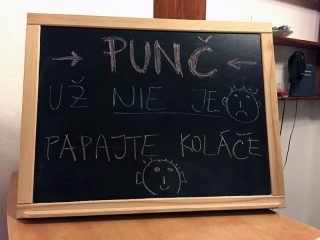 → PUNČ ←
UŽ NIE JE
PAPAJTE KOLÁČE